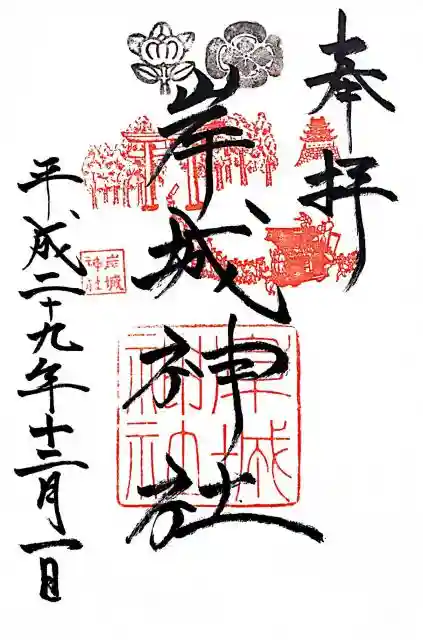 奉拝
岸城神社
岸城
神社
岸城
神社
平成二十九年十二月一日